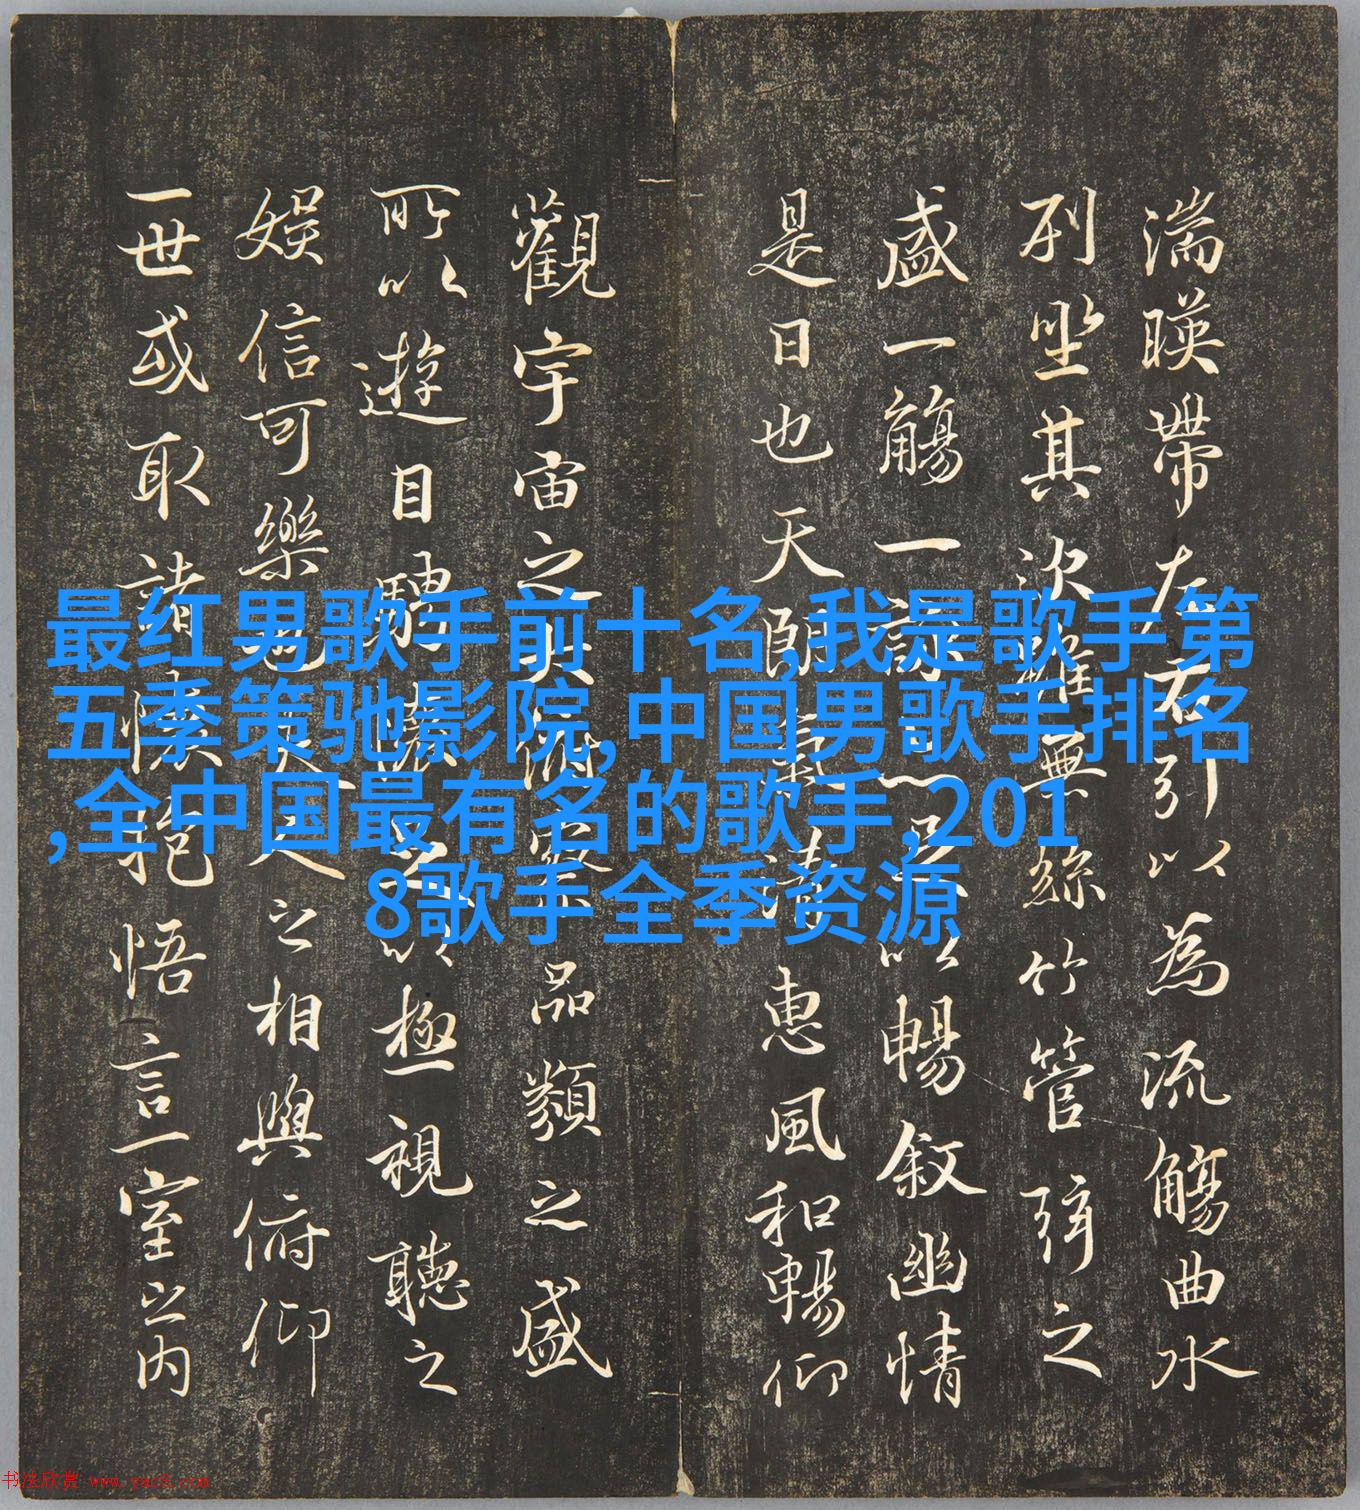 湍暎帶左右引以為流觴曲水
列坐其次雖無絲竹管弦之
盛一觴一詠亦足以暢敘幽情
是日也天朗氣清惠風和暢仰
觀宇宙之大俯察品類之盛
所以遊目騁懷足以極視聽之
娛信可樂也夫人之相與俯仰
一世或取諸懷抱悟言一室之內
最红男歌手前十名,我是歌手第
五季策驰影院,中国男歌手排名
,全中国最有名的歌手,201
8歌手全季资源
书法欣赏 www.yac8.com